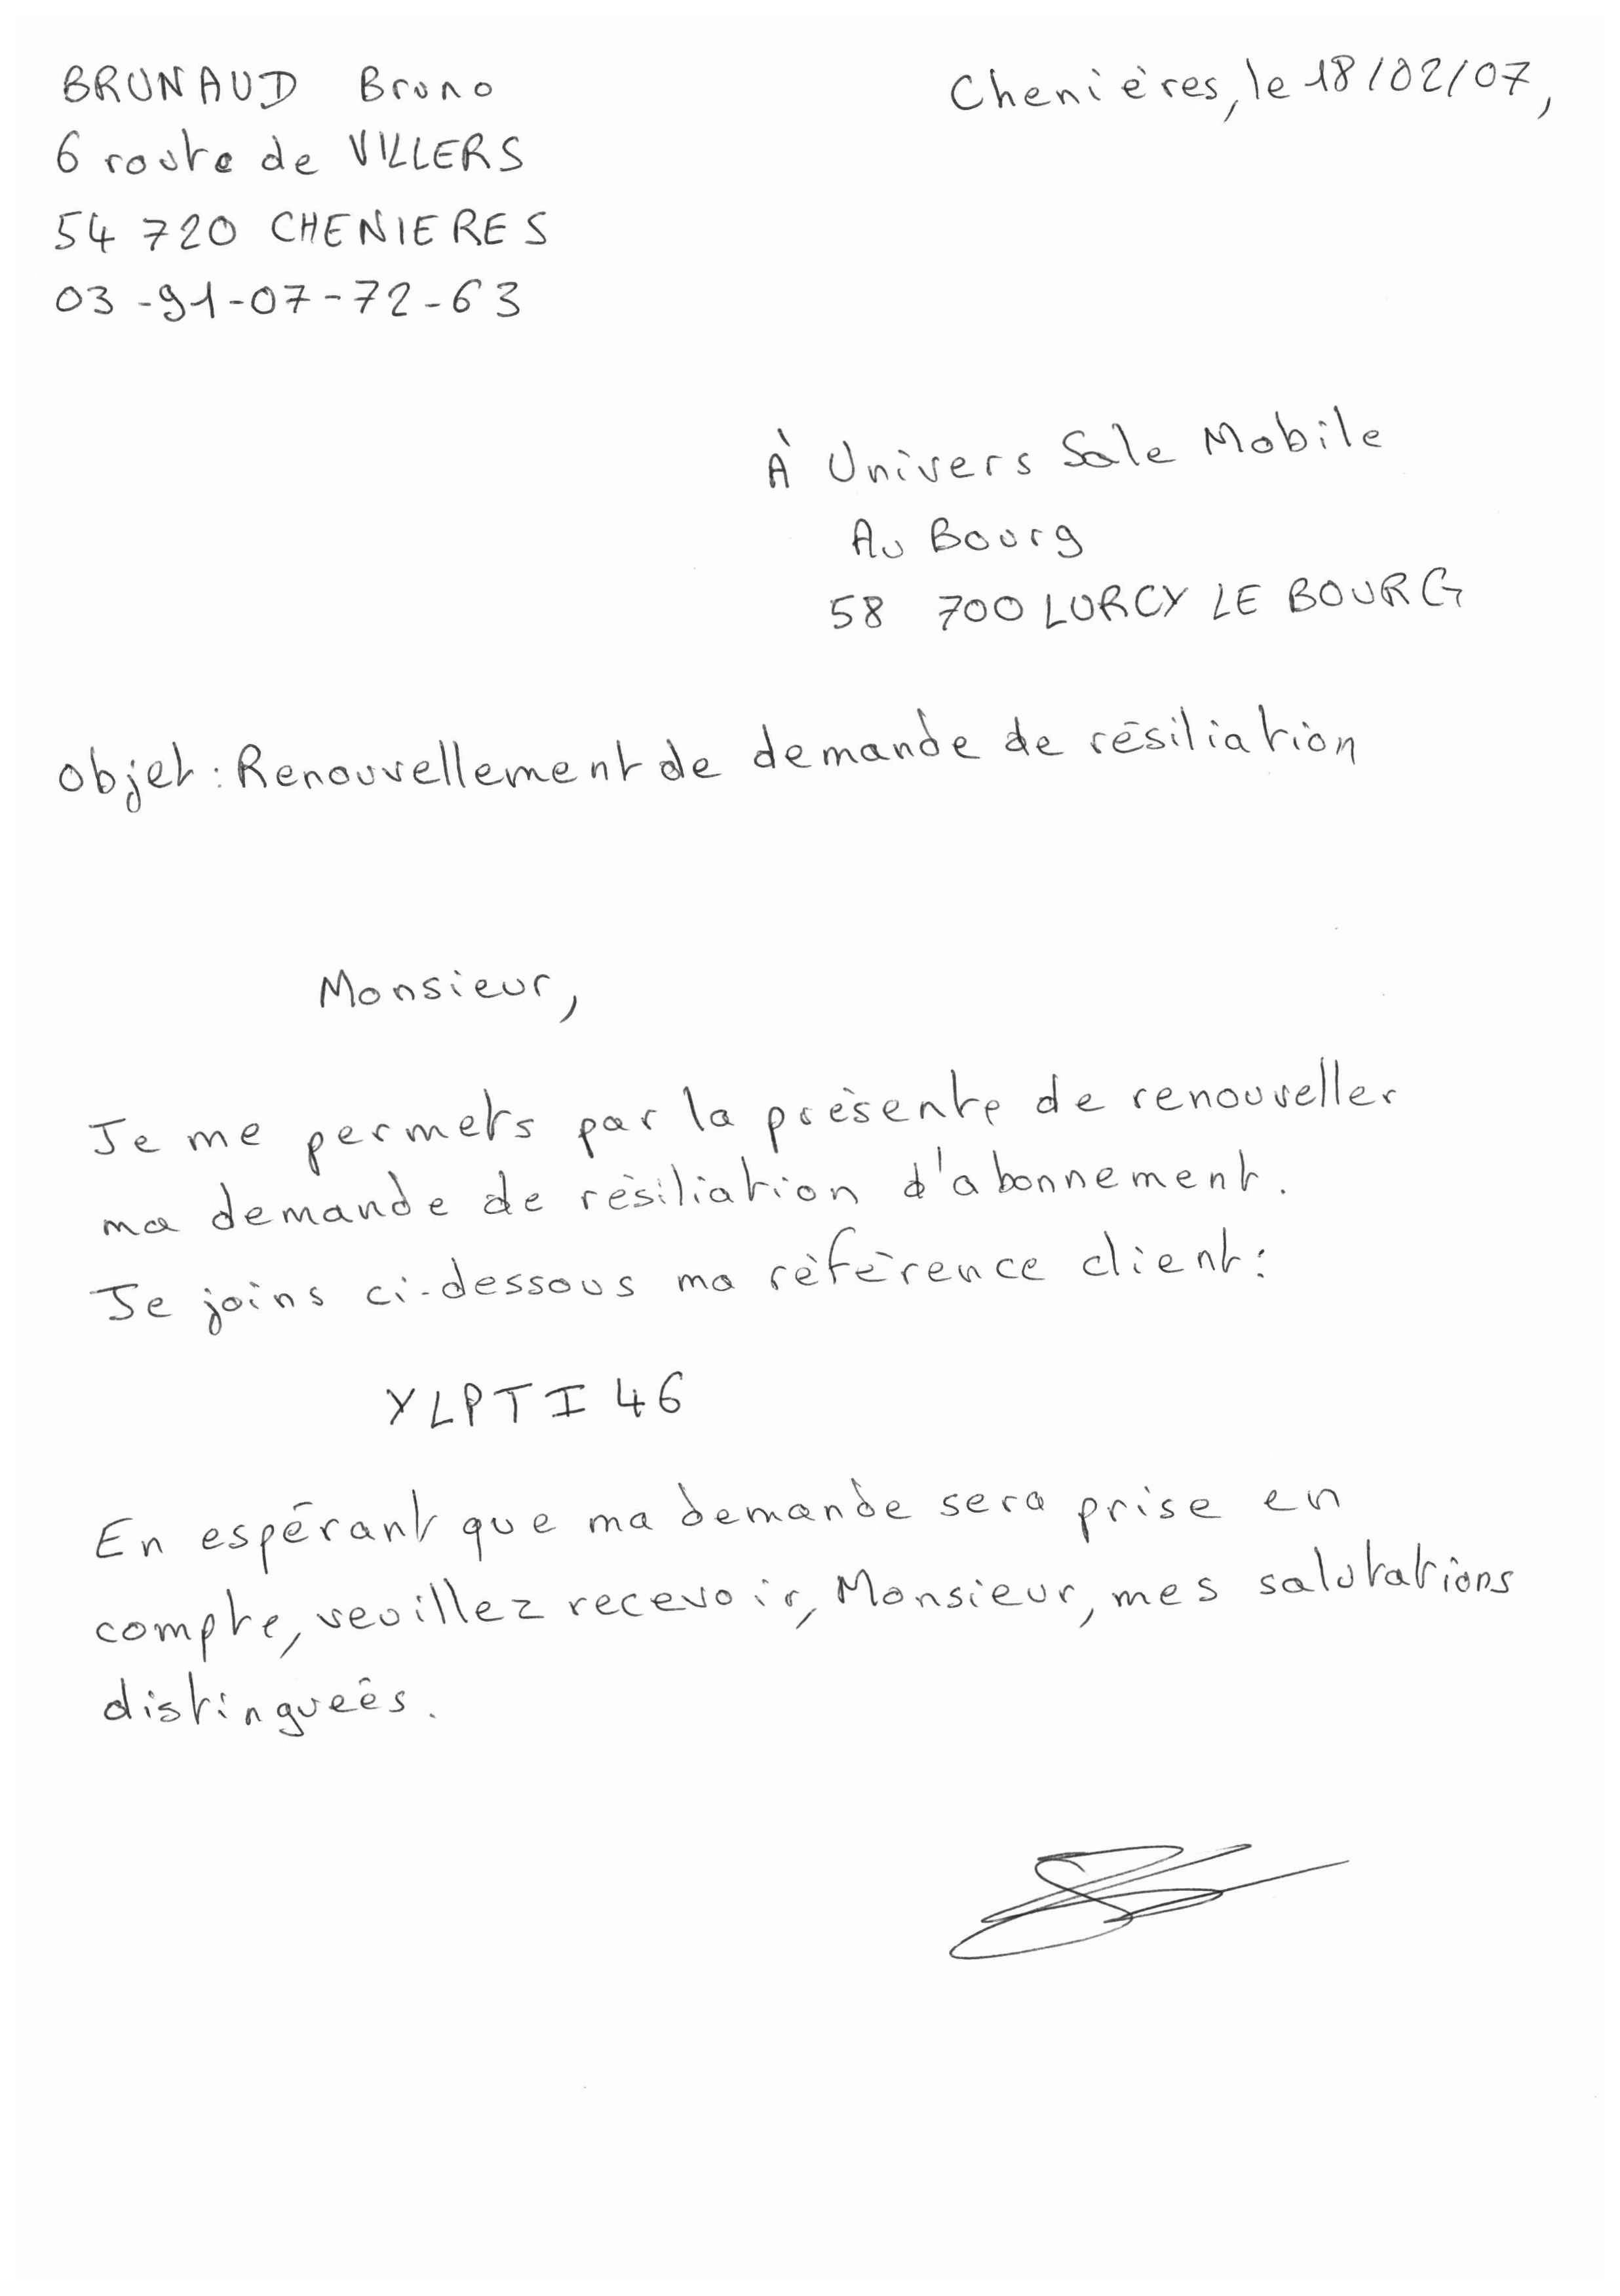 BRUNAUD Bruno
6 route de VILLERS
54 720 CHENIERES
03-91-07-72-63
Chenières, le 18/02/07,
À Univers Sale Mobile
Au Bourg
58 700 LURCY LE BOURG
Objet : Renouvellement de demande de résiliation
Monsieur,
Je me permets par la présente de renouveller
ma demande de résiliation d'abonnement.
Je joins ci-dessous ma référence client :
YLPTI46
En espérant que ma demande sera prise en
compte, veuillez recevoir, Monsieur, mes salutations
distinguées.